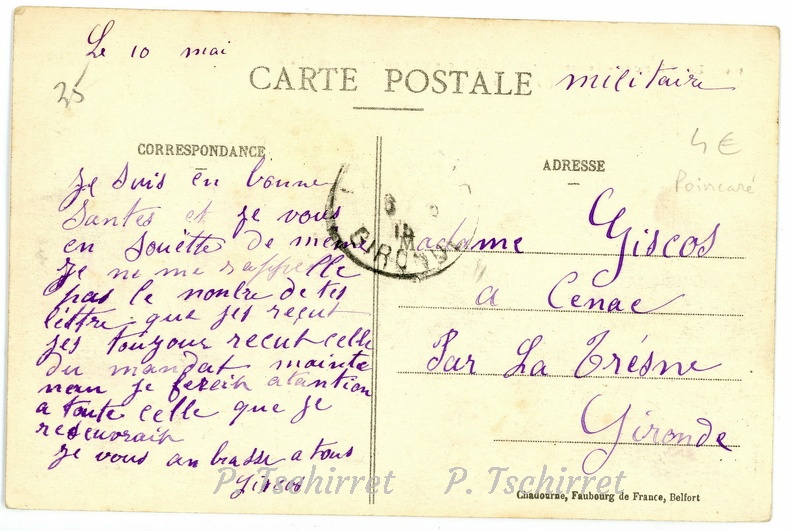 Le 10 mai
25
CARTE POSTALE militaire
4€
Poincaré
CORRESPONDANCE
ADRESSE
je suis en bonne
santes et je vous
en souëtte de meme
je ne me rappelle
pas le nonbre de tes
lèttre que jes reçut
jes toujour recut celle
du mandat mainte
nan je ferait atantion
a toute celle que je
reseuvrait
je vous anbrasse a tous
Giscos
GIRONDE
Madame Giscos
a Cenac
Par La Trésne
Gironde
P. Tschirret P. Tschirret
Chadourne, Faubourg de France, Belfort